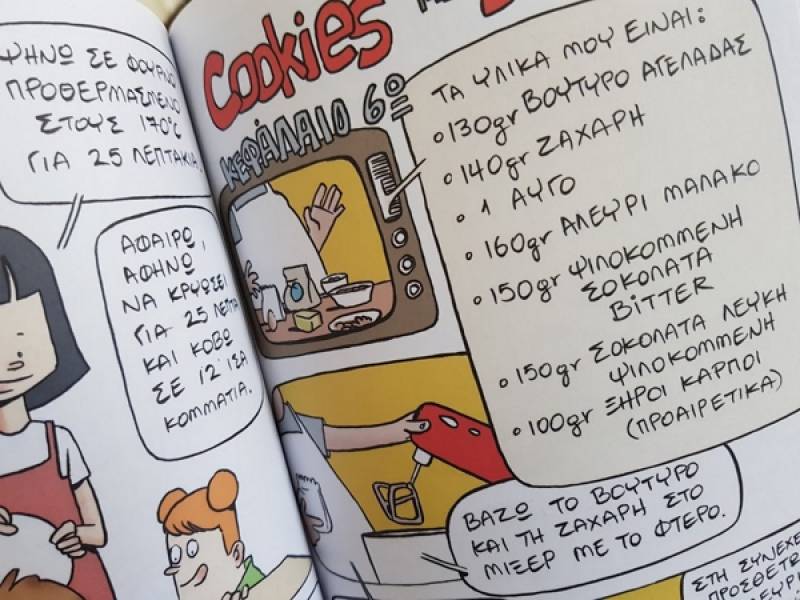 ΨΗΝΩ ΣΕ ΦΟΥΡΝΟ
ΠΡΟΘΕΡΜΑΣΜΕΝΟ
ΣΤΟΥΣ 170°C
ΓΙΑ 25 ΛΕΠΤΑΚΙΑ
ΑΦΑΙΡΩ,
ΑΦΗΝΩ,
ΝΑ ΚΡΥΩΣΕΙ
ΓΙΑ 25 ΛΕΠΤΑ
ΚΑΙ ΚΟΒΩ
ΣΕ 12 ΙΣΑ
ΚΟΜΜΑΤΙΑ.
Cookies
ΚΕΦΑΛΑΙΟ 6º
ΤΑ ΥΛΙΚΑ ΜΟΥ ΕΙΝΑΙ:
• 130gr ΒΟΥΤΥΡΟ ΑΓΕΛΑΔΑΣ
• 140gr ΖΑΧΑΡΗ
• 1 ΑΥΓΟ
• 160gr ΑΛΕΥΡΙ ΜΑΛΑΚΟ
• 150gr ΨΙΛΟΚΟΜΜΕΝΗ
ΣΟΚΟΛΑΤΑ
BITTER
• 150gr ΣΟΚΟΛΑΤΑ ΛΕΥΚΗ
ΨΙΛΟΚΟΜΜΕΝΗ
• 100gr ΞΗΡΟΙ ΚΑΡΠΟΙ
(ΠΡΟΑΙΡΕΤΙΚΑ)
ΒΑΖΩ ΤΟ ΒΟΥΤΥΡΟ
ΚΑΙ ΤΗ ΖΑΧΑΡΗ ΣΤΟ
ΜΙΞΕΡ ΜΕ ΤΟ ΦΤΕΡΟ.
ΣΤΗ